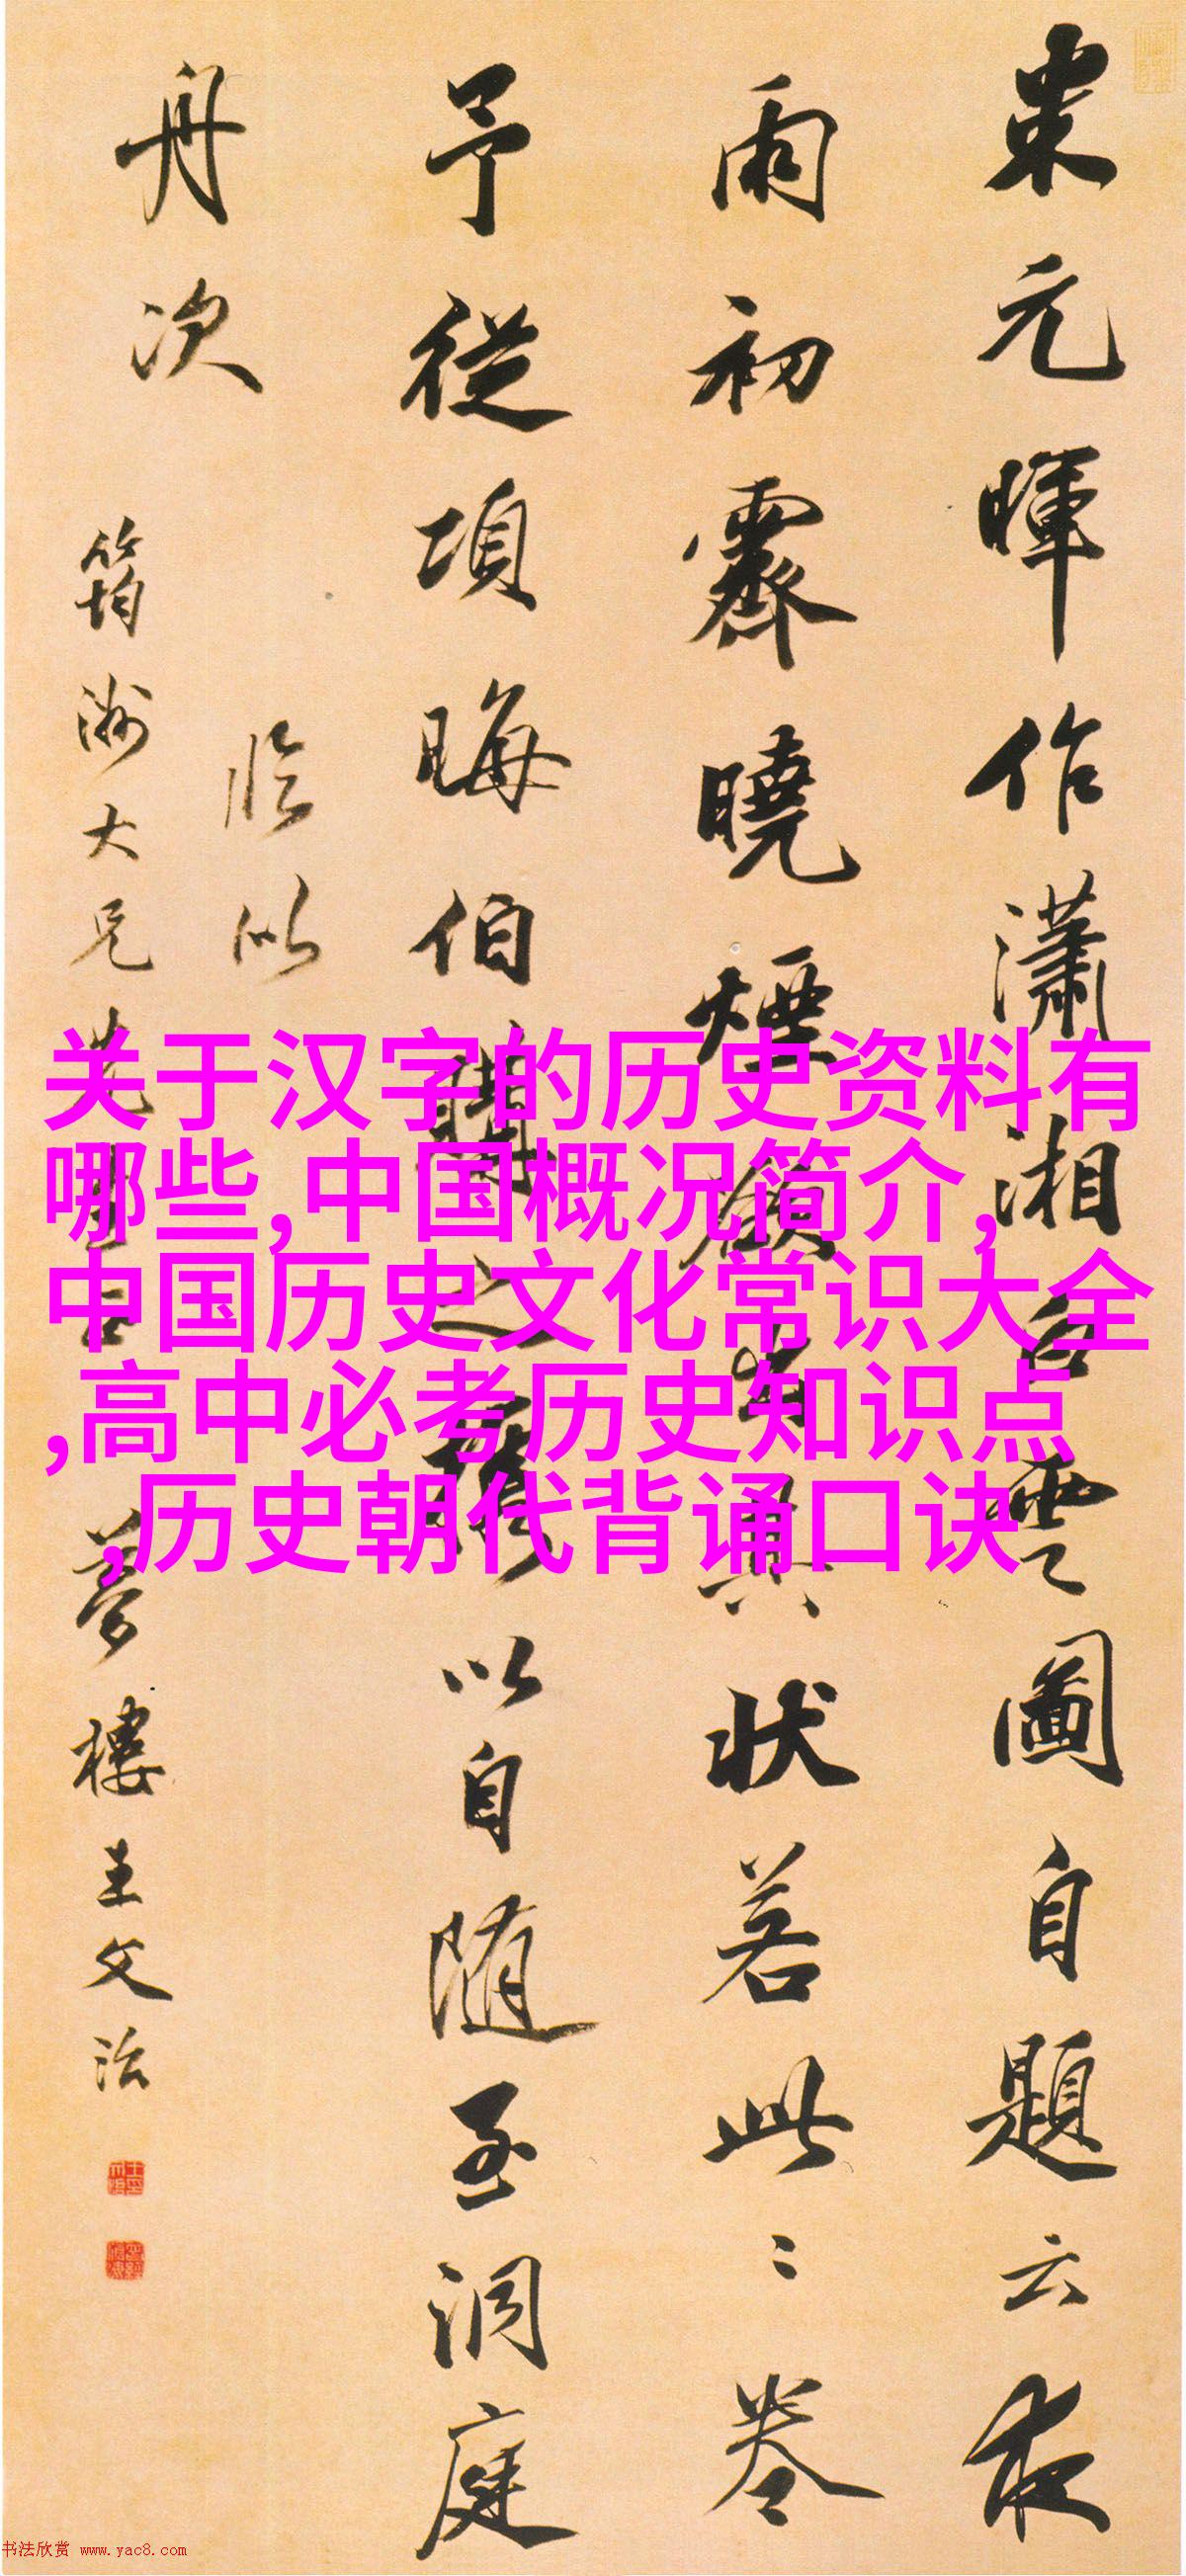 米元暉作瀟湘白雲圖自題云夜
雨初霽曉煙欲出其状若此此卷
予從項晦伯購之攜以自随至洞庭
舟次
臨似
筠洲大兄先生正
夢樓王文治
关于汉字的历史资料有
哪些,中国概况简介,
中国历史文化常识大全
,高中必考历史知识点
,历史朝代背诵口诀
书法欣赏 www.yac8.com